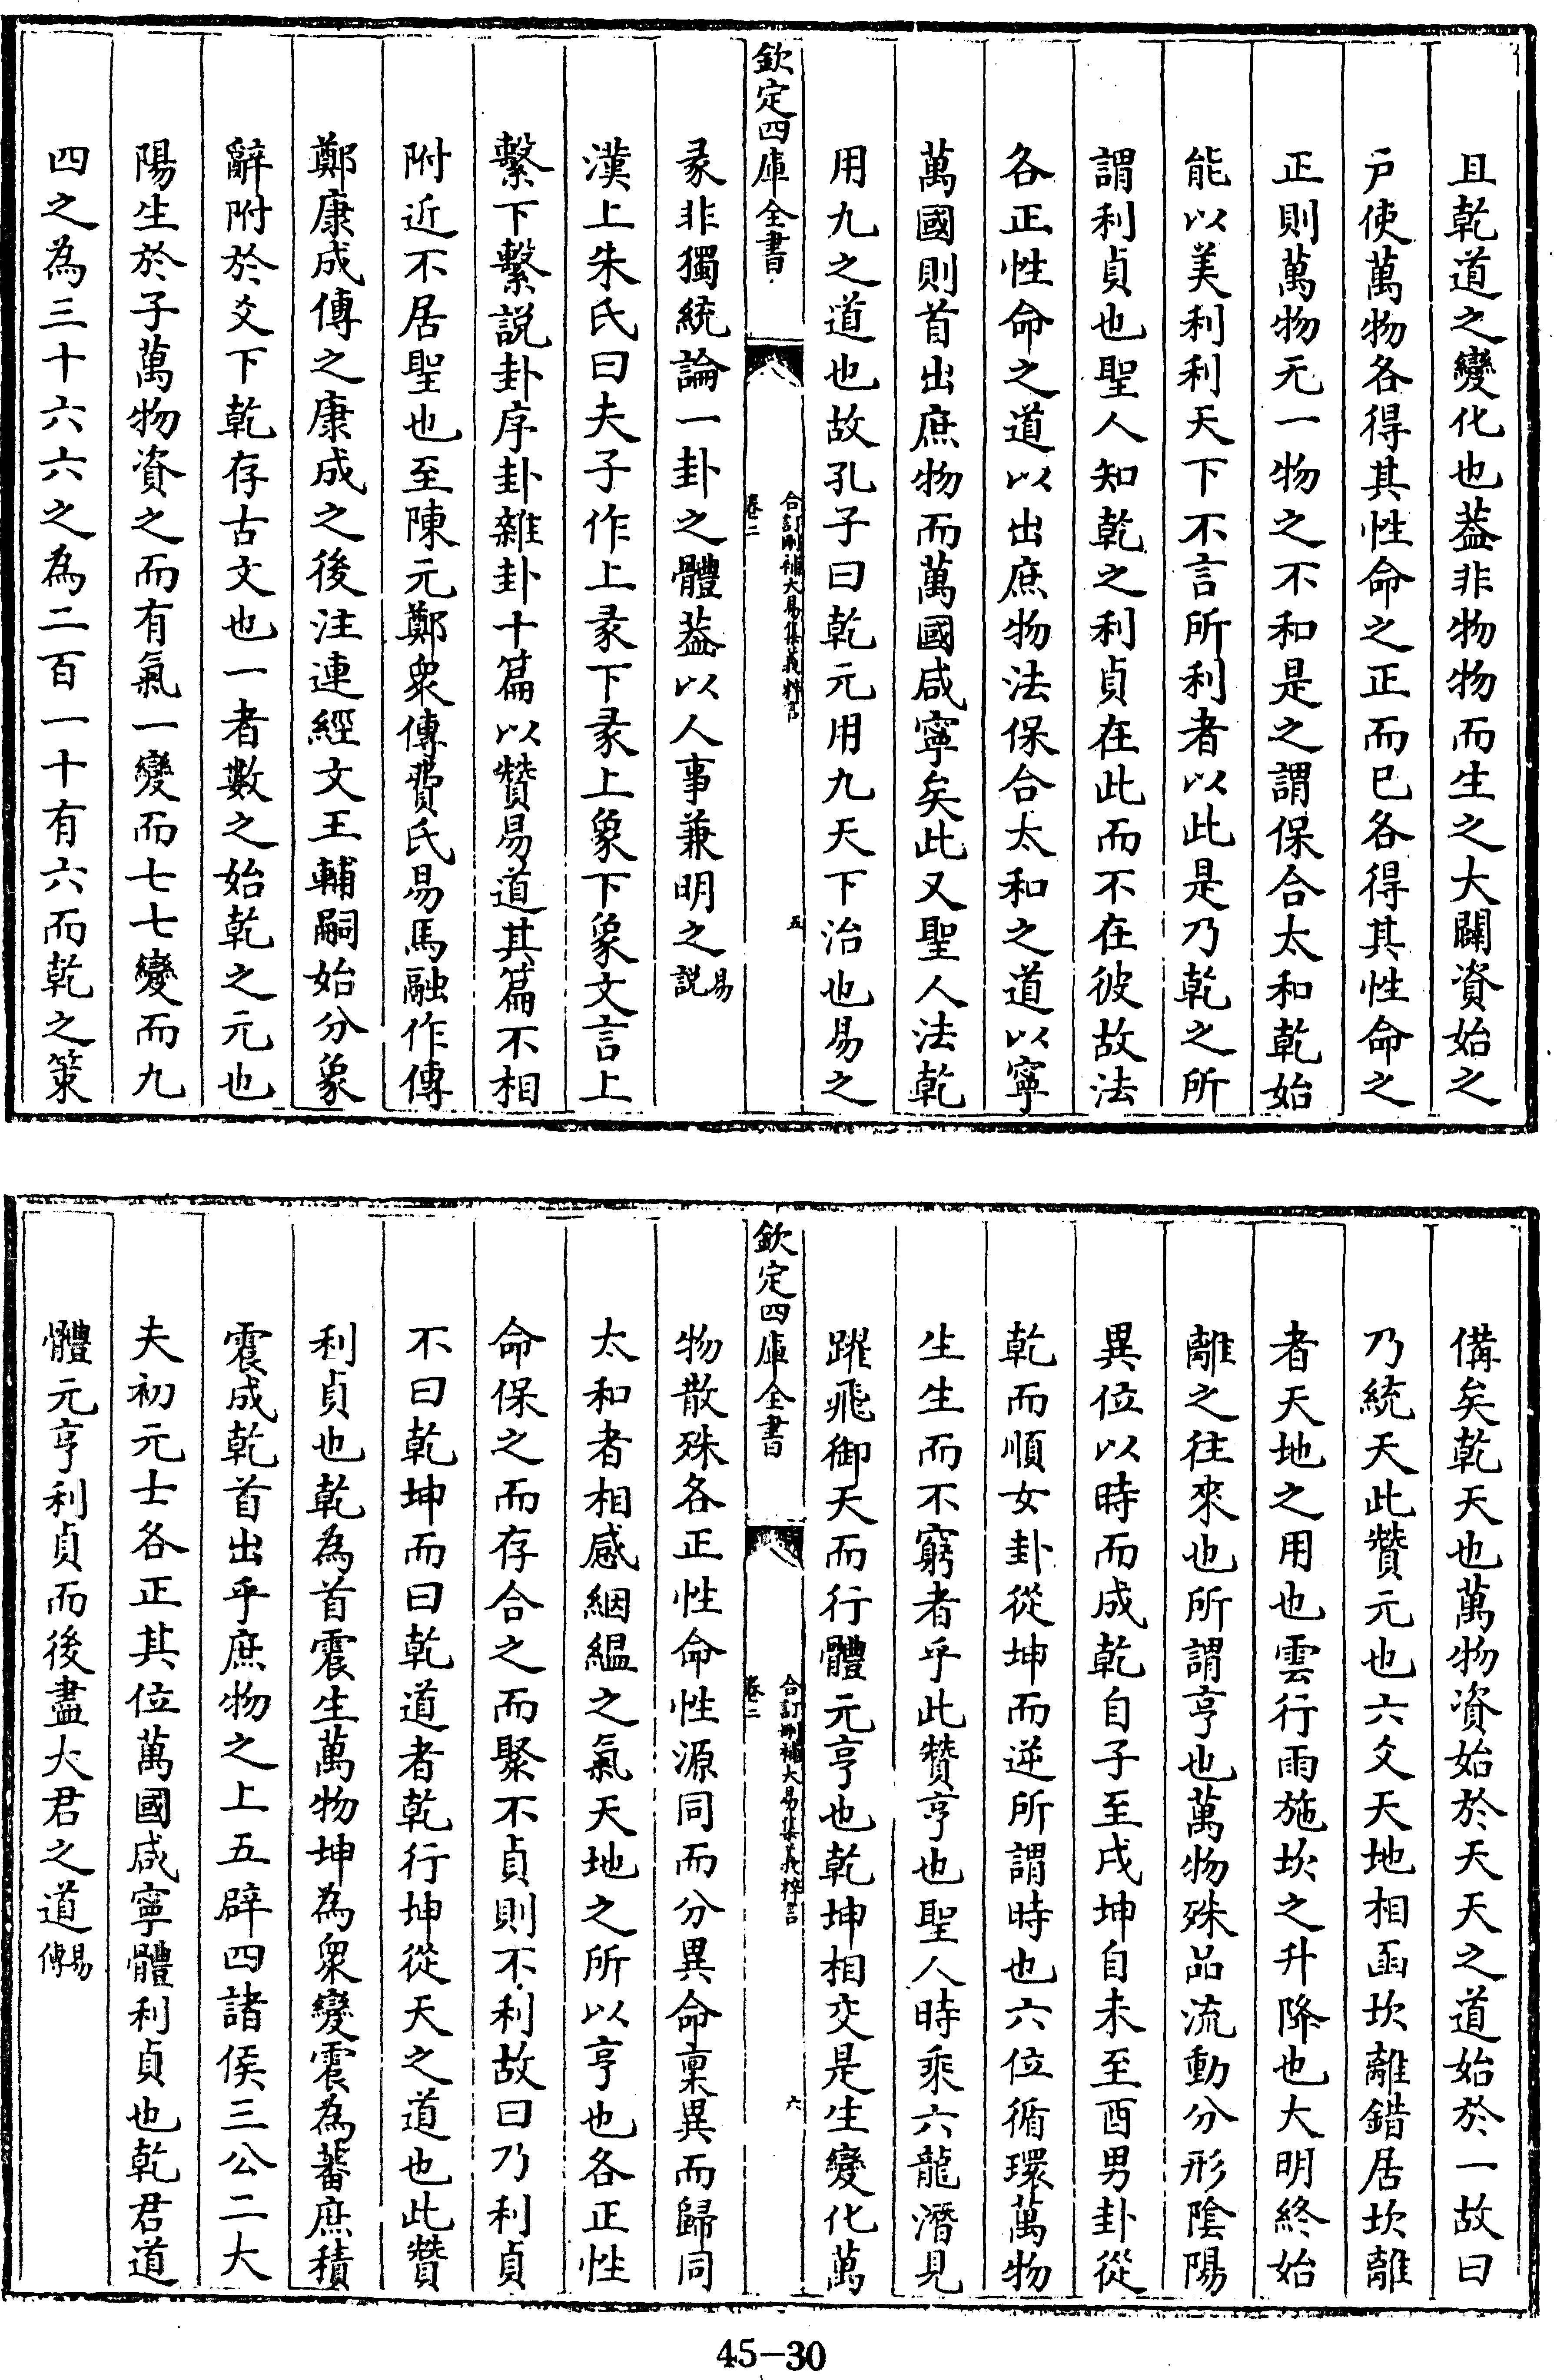 且乾道之變化也葢非物物而生之大闢資始之
戸使萬物各得其性命之正而已各得其性命之
正則萬物无一物之不和是之謂保合太和乾始
能以美利利天下不言所利者以此是乃乾之所
謂利貞也聖人知乾之利貞在此而不在彼故法
各正性命之道以出庶物法保合太和之道以寧
萬國則首出庶物而萬國咸寧矣此又聖人法乾
用九之道也故孔子曰乾元用九天下治也易之
欽定四庫全書
合訂刪補大易集義粹言
卷二
五
彖非獨統論一卦之體葢以人事兼明之易說
漢上朱氏曰夫子作上彖下彖上象下象文言上
繫下繫説卦序卦雜卦十篇以贊易道其篇不相
附近不居聖也至陳元鄭衆傳費氏易馬融作傳
鄭康成傳之康成之後注連經文王輔嗣始分象
辭附於爻下乾存古文也一者數之始乾之元也
陽生於子萬物資之而有氣一變而七七變而九
四之為三十六六之為二百一十有六而乾之策
備矣乾天也萬物資始於天天之道始於一故曰
乃統天此贊元也六爻天地相函坎離錯居坎離
者天地之用也雲行雨施坎之升降也大明終始
離之往來也所謂亨也萬物殊品流動分形陰陽
異位以時而成乾自子至戌坤自未至酉男卦從
乾而順女卦從坤而逆所謂時也六位循環萬物
生生而不窮者乎此贊亨也聖人時乘六龍潛見
躍飛御天而行體元亨也乾坤相交是生變化萬
欽定四庫全書
合訂刪補大易集義粹言
卷二
六
物散殊各正性命性源同而分異命稟異而歸同
太和者相感絪緼之氣天地之所以亨也各正性
命保之而存合之而聚不貞則不利故曰乃利貞
不曰乾坤而曰乾道者乾行坤從天之道也此贊
利貞也乾為首震生萬物坤為衆變震為蕃庶積
震成乾首出乎庶物之上五辟四諸侯三公二大
夫初元士各正其位萬國咸寧體利貞也乾君道
體元亨利貞而後盡大君之道易傳
45-30